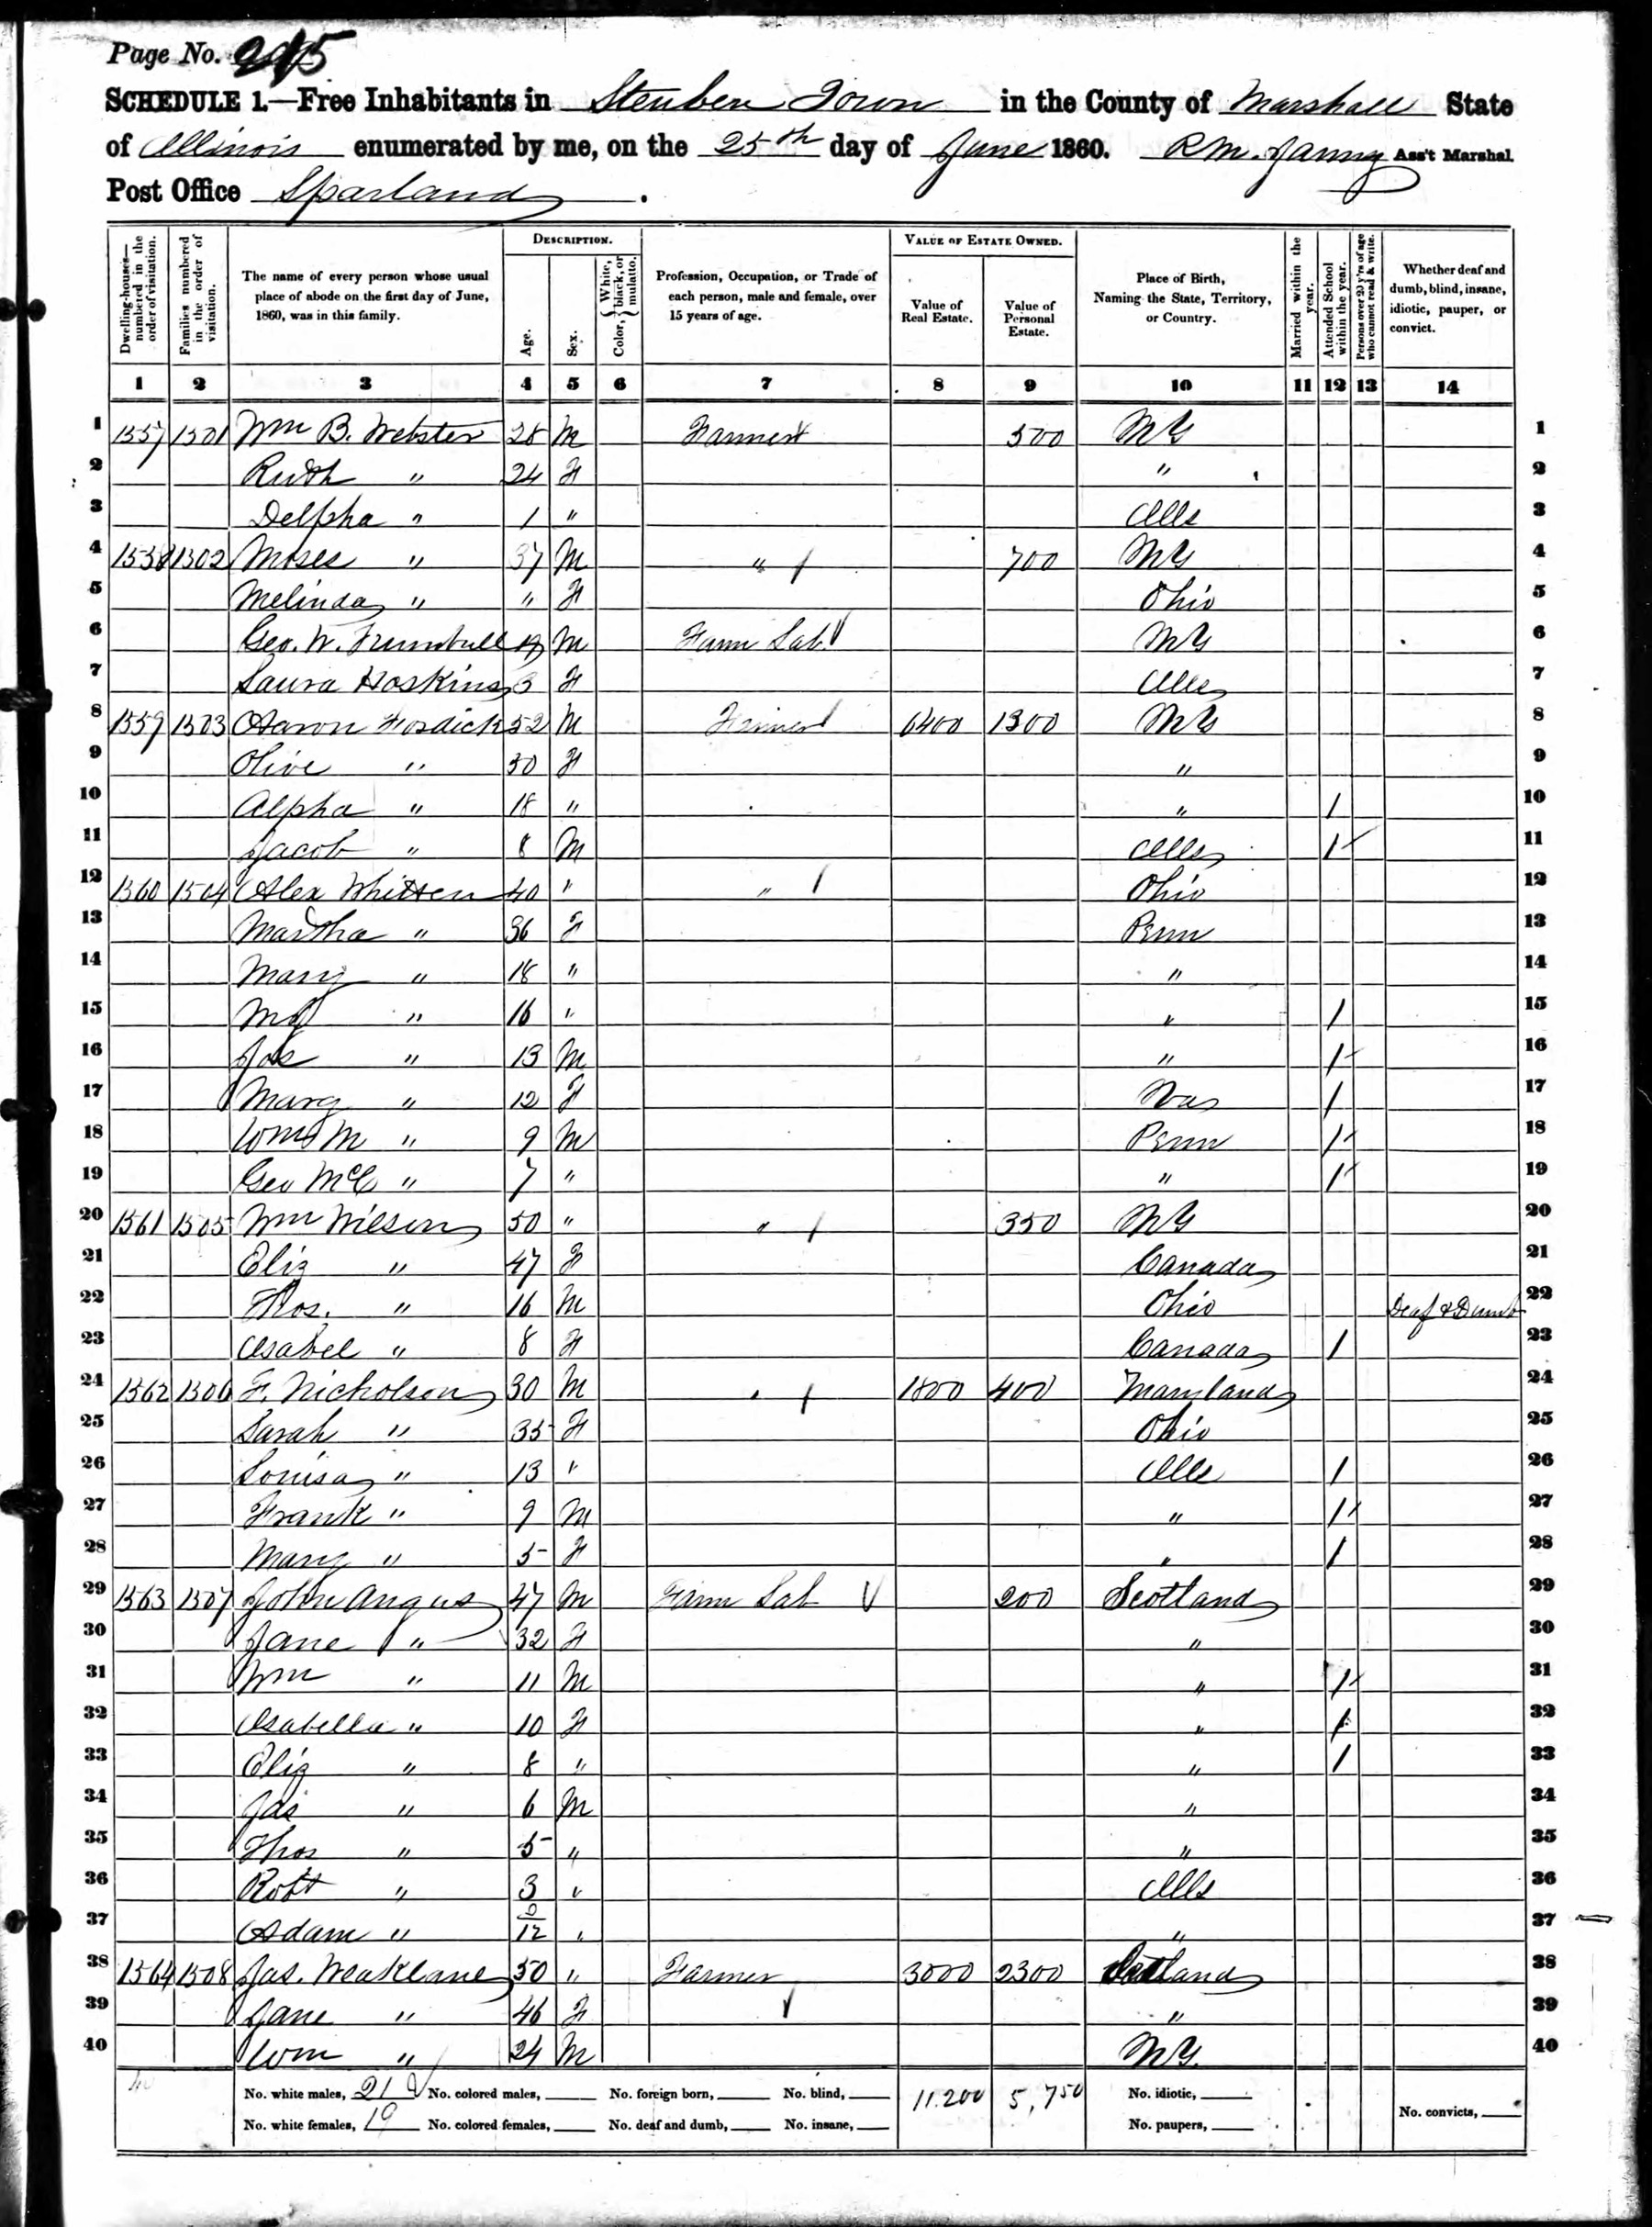 Page No. 215
SCHEDULE 1.—Free Inhabitants in Steuben Town in the County of Marshall State
of Illinois enumerated by me, on the 25th day of June 1860. R M. Janny Ass't Marshal.
Post Office Sparland.
Dwelling-houses—numbered in the order of visitation.
Families numbered in the order of visitation.
The name of every person whose usual place of abode on the first day of June, 1860, was in this family.
DESCRIPTION.
Age.
Sex.
Color, { White, black, or mulatto.
Profession, Occupation, or Trade of each person, male and female, over 15 years of age.
VALUE OF ESTATE OWNED.
Value of Real Estate.
Value of Personal Estate.
Place of Birth, Naming the State, Territory, or Country.
Married within the year.
Attended School within the year.
Persons over 20 y'rs of age who cannot read & write.
Whether deaf and dumb, blind, insane, idiotic, pauper, or convict.
1 2 3 4 5 6 7 8 9 10 11 12 13 14
1 1557 1501 Wm B. Webster 28 M Farmer 500 NY 1
2 Ruth " 24 F " 2
3 Delpha " 1 " Ills 3
4 1558 1502 Moses " 37 M " 700 NY 4
5 Melinda " " F Ohio 5
6 Geo. W. Trumbull 19 M Farm Lab NY 6
7 Laura Hoskins 3 F Ills 7
8 1559 1503 Aaron Fosdick 52 M Farmer 6400 1300 NY 8
9 Olive " 50 F " 9
10 Alpha " 18 " " 1 10
11 Jacob " 8 M Ills 1 11
12 1560 1504 Alex Whitten 40 " " Ohio 12
13 Martha " 36 F Penn 13
14 Mary " 18 " " 14
15 " 16 " " 1 15
16 Jas " 13 M " 1 16
17 Marg " 12 F 1 17
18 Wm M " 9 M Penn 1 18
19 Geo McC " 7 " " 1 19
20 1561 1505 Wm Wilson 50 " " 350 NY 20
21 Eliz " 47 F Canada 21
22 Thos. " 16 M Ohio Deaf & Dumb 22
23 Isabel " 8 F Canada 1 23
24 1562 1506 F. Nicholson 30 M " 1800 400 Maryland 24
25 Sarah " 35 F Ohio 25
26 Louisa " 13 " Ills 1 26
27 Frank " 9 M " 1 27
28 Mary " 5 F " 1 28
29 1563 1507 John Angus 47 M Farm Lab 200 Scotland 29
30 Jane " 32 F " 30
31 Wm " 11 M " 1 31
32 Isabella " 10 F " 1 32
33 Eliz " 8 " " 1 33
34 Jas " 6 M " 34
35 Thos " 5 " " 35
36 Robt " 3 " Ills 36
37 Adam " /12 " " 37
38 1564 1508 Jas. Weaklane 50 " Farmer 3000 2300 Scotland 38
39 Jane " 46 F " 39
40 Wm " 24 M NY. 40
No. white males, 21 No. colored males, No. foreign born, No. blind, 11.200 5,750 No. idiotic,
No. white females, 19 No. colored females, No. deaf and dumb, No. insane, No. paupers, No. convicts,